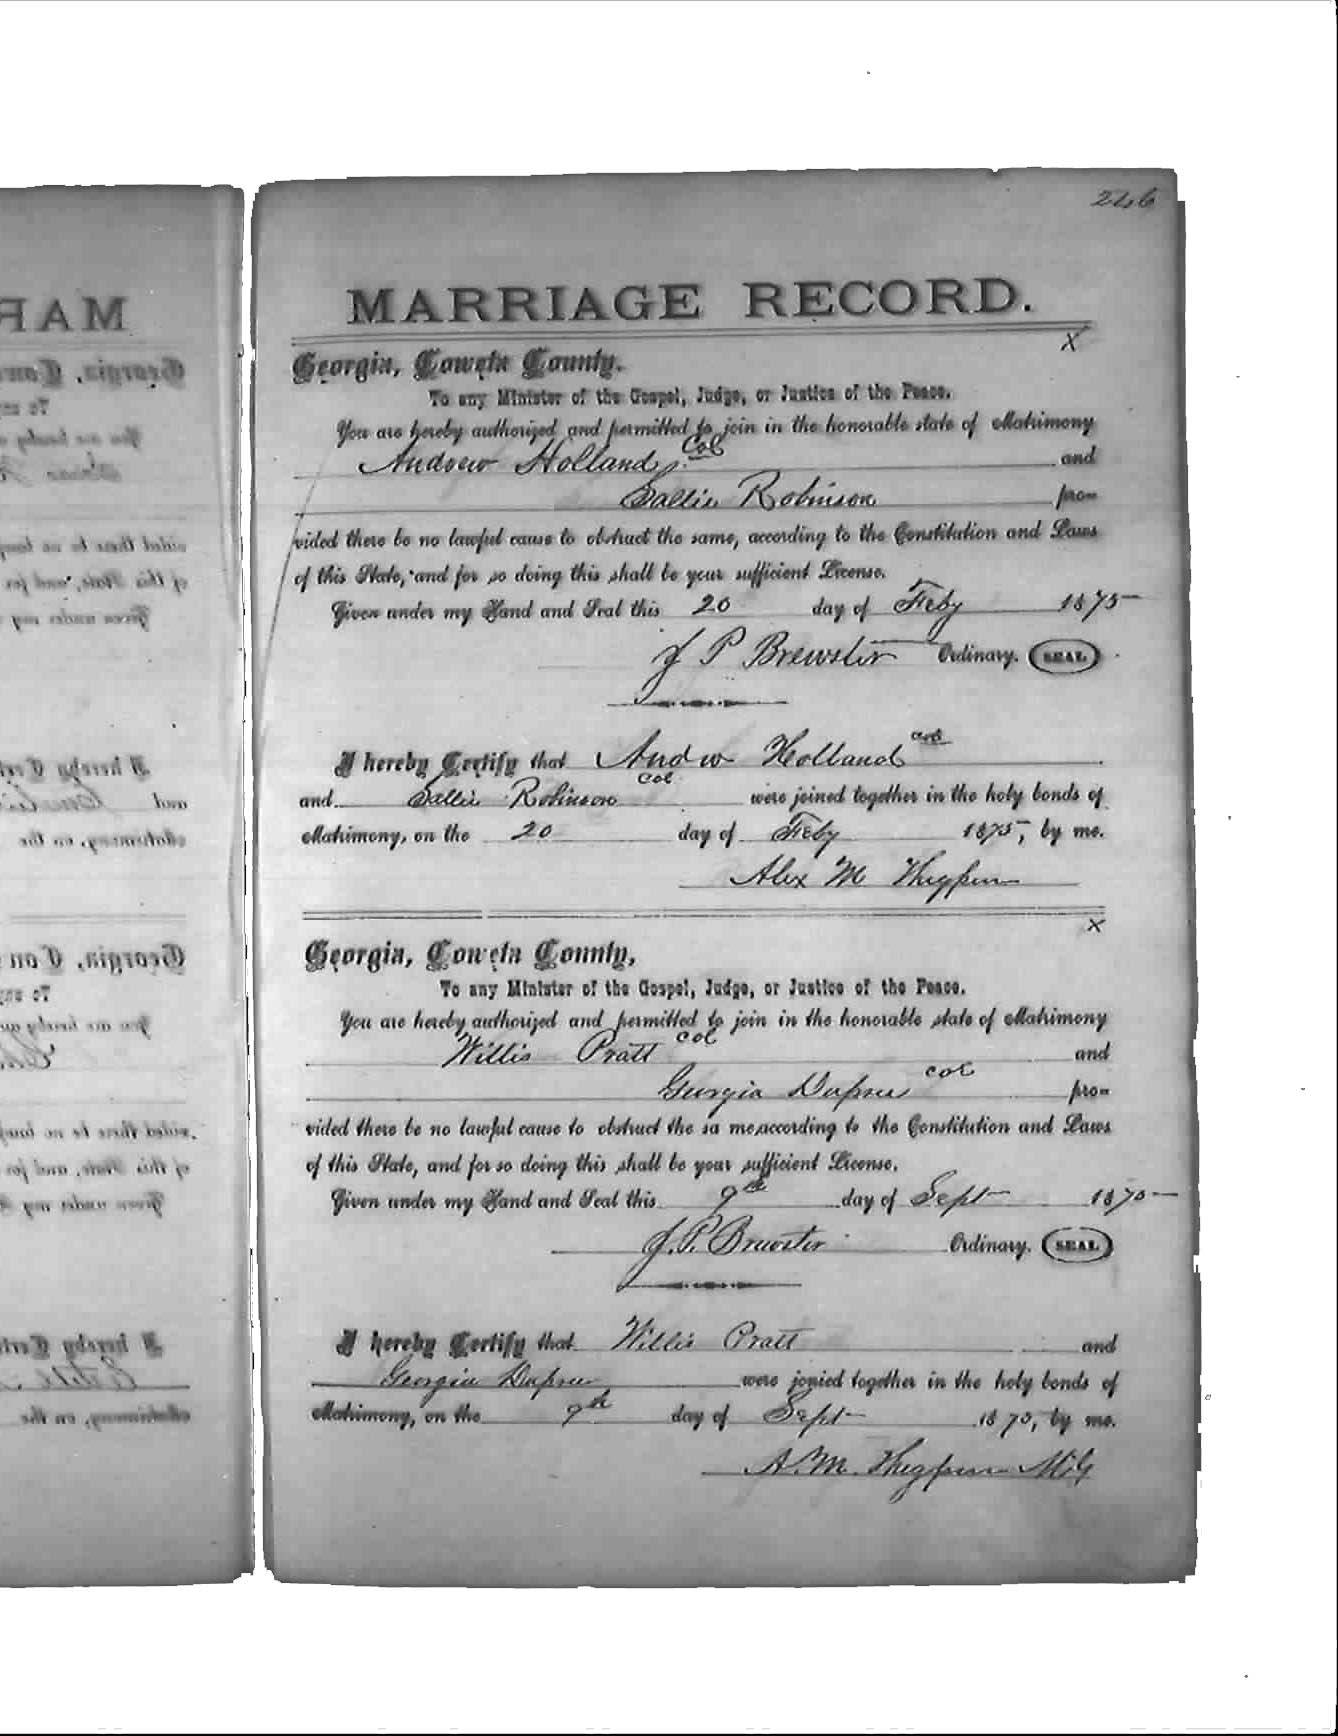 246
MARRIAGE RECORD.
X
Georgia, Coweta County.
To any Minister of the Gospel, Judge, or Justice of the Peace.
You are hereby authorized and permitted to join in the honorable state of Matrimony
Andrew Holland Col and
Sallie Robinson pro-
vided there be no lawful cause to obstruct the same, according to the Constitution and Laws
of this State, and for so doing this shall be your sufficient License.
Given under my Hand and Seal this 20 day of Feby 1875
J P Brewster Ordinary. SEAL
I hereby Certify that Andw Holland col
and Sallie Robinson Col were joined together in the holy bonds of
Matrimony, on the 20 day of Feby 1875, by me.
Alex M Thigpen
X
Georgia, Coweta County,
To any Minister of the Gospel, Judge, or Justice of the Peace.
You are hereby authorized and permitted to join in the honorable state of Matrimony
Willis Pratt col and
Georgia Dupree col pro-
vided there be no lawful cause to obstruct the sa me, according to the Constitution and Laws
of this State, and for so doing this shall be your sufficient License.
Given under my Hand and Seal this 9th day of Sept 1875
J. P. Brewster Ordinary. SEAL
I hereby Certify that Willis Pratt and
Georgia Dupree were jonied together in the holy bonds of
Matrimony, on the 9th day of Sept 1875, by me.
A. M. Thigpen MG